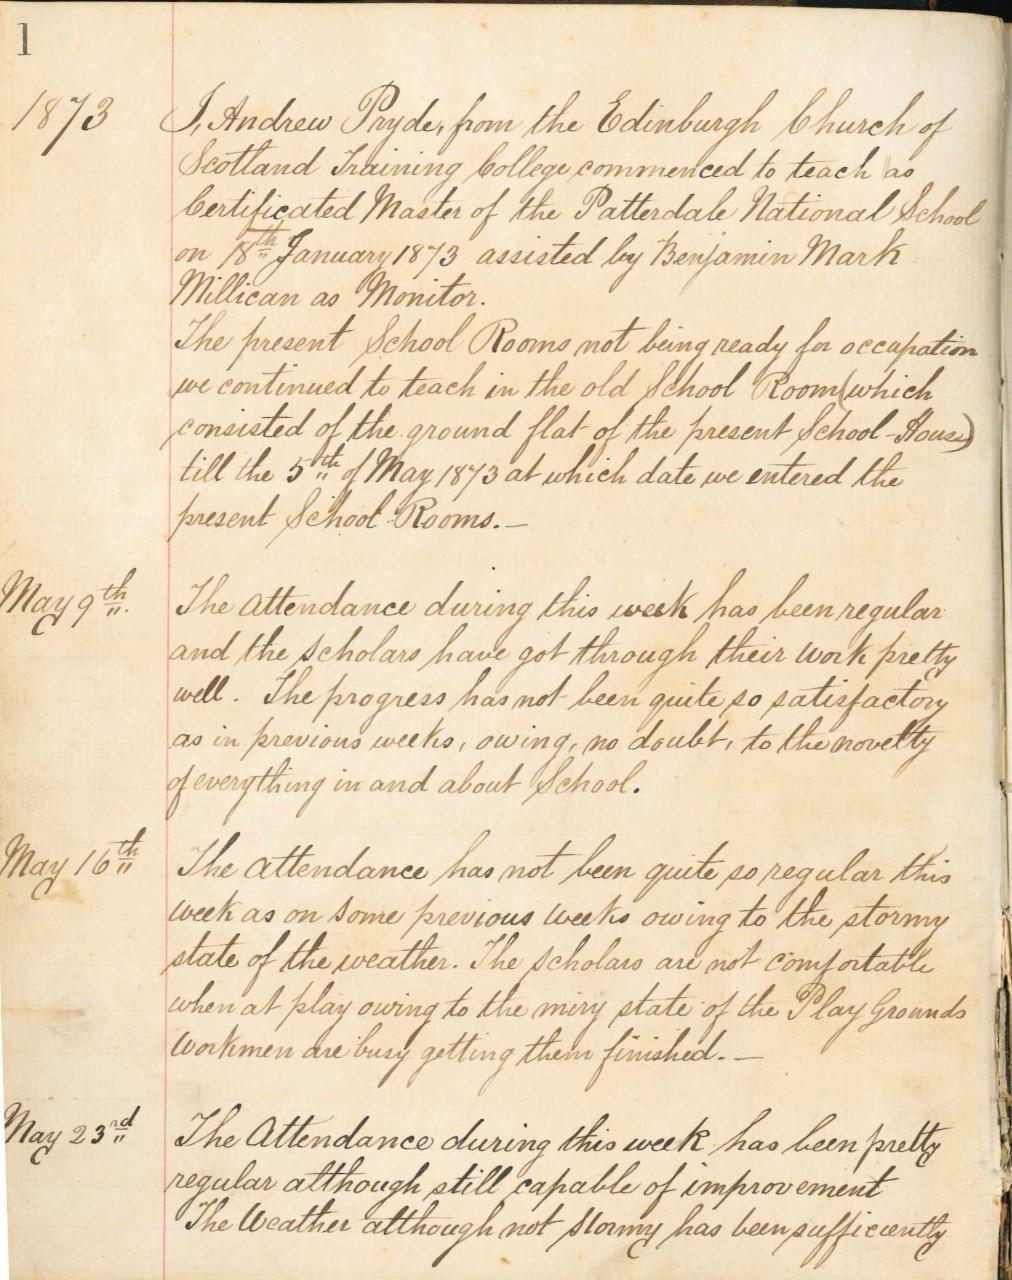 1
1873
I, Andrew Pryde, from the Edinburgh Church of
Scotland Training College commenced to teach as
Certificated Master of the Patterdale National School
on 18th January 1873 assisted by Benjamin Mark
Millican as Monitor.
The present School Rooms not being ready for occupation
we continued to teach in the old School Room (which
consisted of the ground flat of the present School-House)
till the 5th of May 1873 at which date we entered the
present School Rooms.—
May 9th.
The Attendance during this week has been regular
and the scholars have got through their work pretty
well. The progress has not been quite so satisfactory
as in previous weeks, owing, no doubt, to the novelty
of everything in and about School.
May 16th
The attendance has not been quite so regular this
week as on some previous weeks owing to the stormy
state of the weather. The scholars are not comfortable
when at play owing to the miry state of the Play Grounds
Workmen are busy getting them finished.—
May 23rd
The Attendance during this week has been pretty
regular although still capable of improvement
The Weather although not stormy has been sufficiently